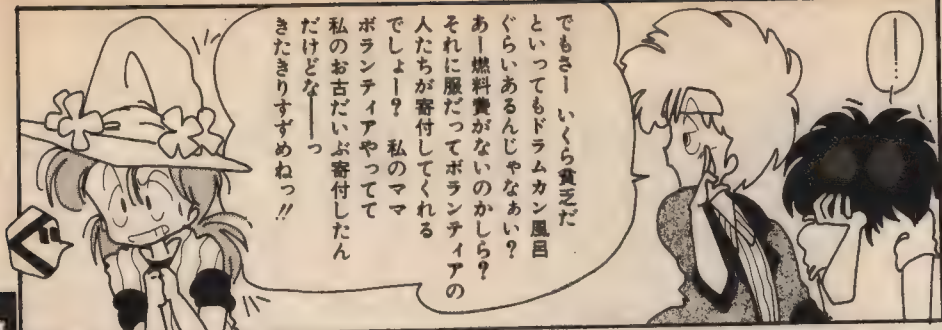 ……
でもさー いくら貧乏だ
といってもドラムカン風呂
ぐらいあるんじゃなぁい?
あー燃料費がないのかしら?
それに服だってボランティアの
人たちが寄付してくれる
でしょー? 私のママ
ボランティアやってて
私のお古だいぶ寄付したん
だけどなーーっ
きたきりすずめねっ!!